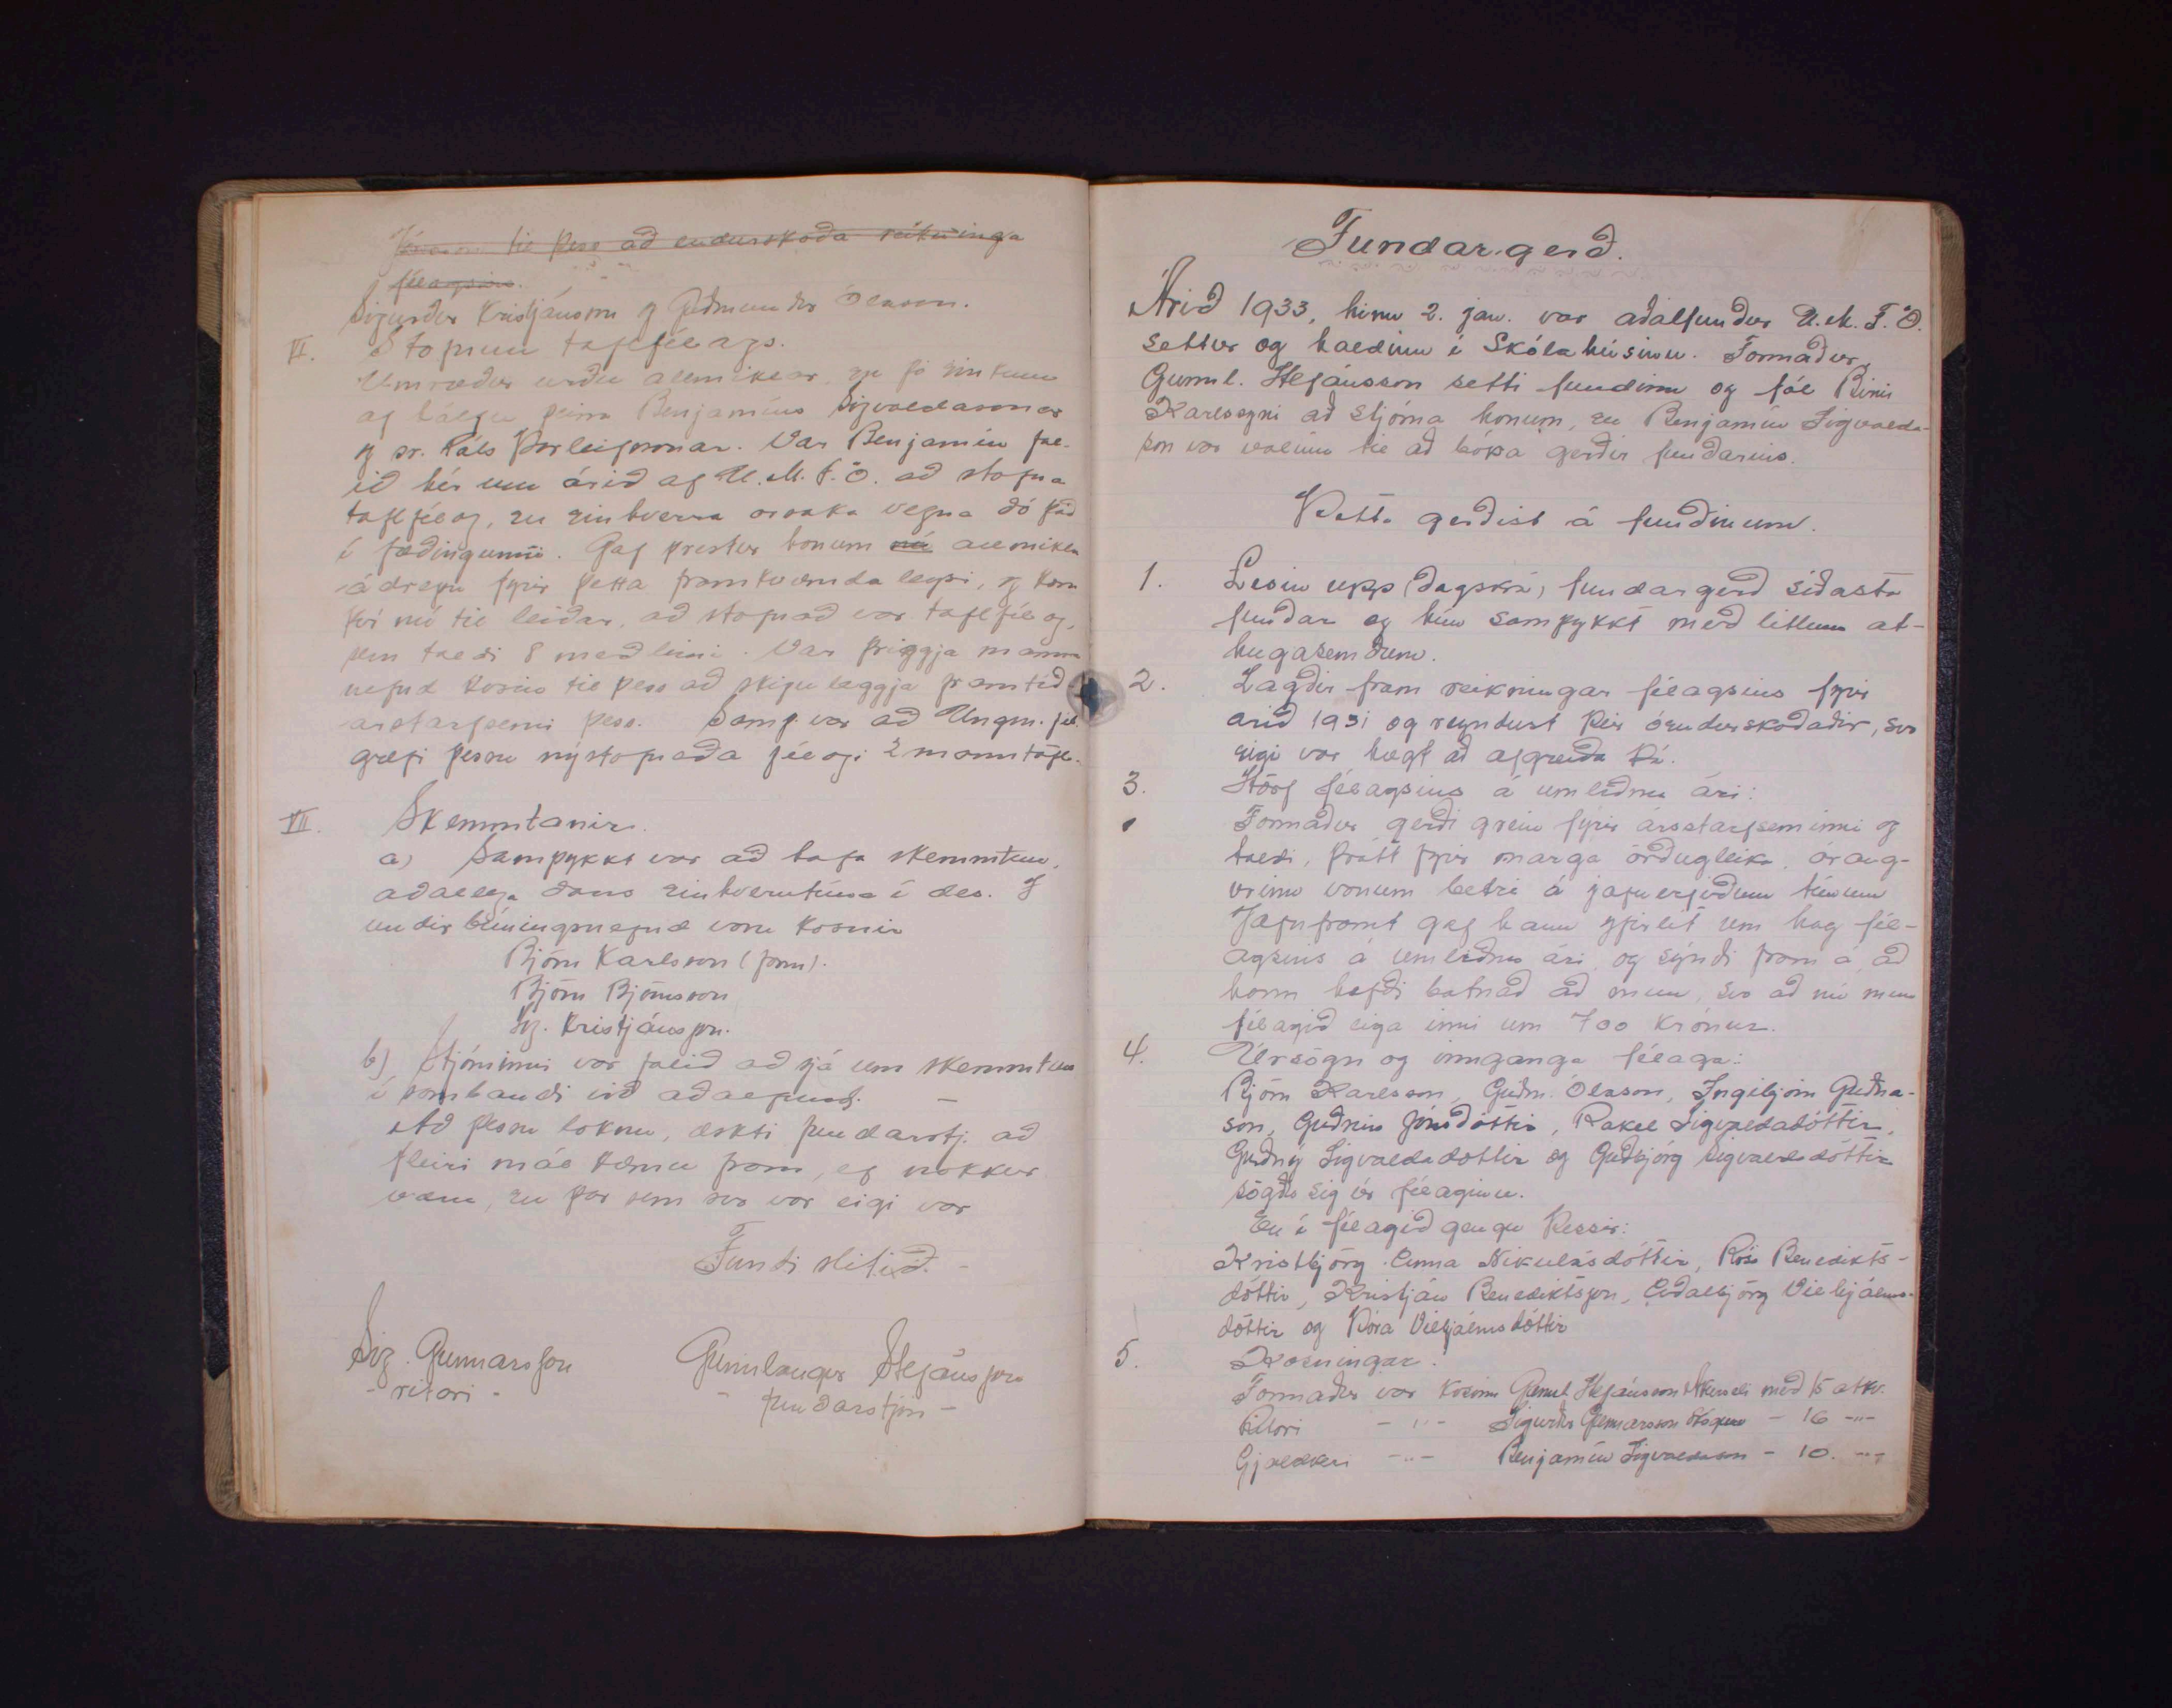 til þess að endurskoða reikninga
félagsins.
Sigurður Kristjánsson og Guðmundur Ólason.
VI. Stofnun taflfélags.
Umræður urðu allmiklar, en þó einkum
af hálfu þeirra Benjamíns Sigvaldasonar
og sr. Páls Þorleifssonar. Var Benjamín fal-
ið hér um árið af U.M.F.Ö. að stofna
taflfélag, en einhverra orsaka vegna dó það
í fæðingunni. Gaf prestur honum nú allmikla
ádrepu fyrir þetta framkvæmdaleysi, og kom
því nú til leiðar, að stofnað var taflfélag,
sem taldi 8 meðlimi. Var þriggja manna
nefnd kosin til þess að skipuleggja framtíð-
arstarfsemi þess. Samþ. var að Ungm. fél.
gæfi þessu nýstofnaða félagi 2 manntöfl.
VII. Skemmtanir.
a) Samþykkt var að hafa skemmtun,
aðallega dans einhverntíma í des. Í
undirbúningsnefnd voru kosnir
Björn Karlsson (form).
Björn Björnsson
Sig. Kristjánsson.
b) Stjórninni var falið að sjá um skemmtun
í sambandi við aðalfund. –
Að þessu loknu, óskti fundarstj. að
fleiri mál kæmu fram, ef nokkur
væru, en þar sem svo var eigi var
Fundi slitið. –
Sig. Gunnarsson Gunnlaugur Stefánsson
- ritari - - fundarstjóri -
Fundargerð.
Árið 1933, hinn 2. jan. var aðalfundur U.M.F.Ö.
settur og haldinn í Skólahúsinu. Formaður,
Gunnl. Stefánsson setti fundinn og fól Birni
Karlssyni að stjórna honum, en Benjamín Sigvalda-
son var valinn til að bóka gerðir fundarins.
Þetta gerðist á fundinum.
1. Lesin upp (dagskrá) fundargerð síðasta
fundar og hún samþykkt með litlum at-
hugasemdum.
2. Lagðir fram reikningar félagsins fyrir
árið 1931 og reyndust þeir óendurskoðaðir, svo
eigi var hægt að afgreiða þá.
3. Störf félagsins á umliðnu ári:
Formaður gerði grein fyrir ársstarfseminni og
taldi, þrátt fyrir marga örðugleika, árang-
urinn vonum betri á jafnerfiðum tímum
Jafnframt gaf hann yfirlit um hag fél-
agsins á umliðnu ári, og sýndi fram á, að
hann hefði batnað að mun, svo að nú mun
félagið eiga inni um 700 krónur.
4. Úrsögn og innganga félaga:
Björn Karlsson, Guðm. Ólason, Ingibjörn Guðna-
son, Guðrún Jónsdóttir, Rakel Sigvaldadóttir,
Guðný Sigvaldadóttir og Guðbjörg Sigvaldadóttir
sögðu sig úr félaginu.
En í félagið gengu þessir:
Kristbjörg Anna Nikulásdóttir, Rósa Benedikts-
dóttir, Kristján Benediktsson, Aðalbjörg Vilhjálms-
dóttir og Þóra Vilhjálmsdóttir
5. Kosningar:
Formaður var kosinn Gunnl. Stefánsson Akurseli með 15 atkv.
Ritari - " - Sigurður Gunnarsson Skógum - 16 - " -
Gjaldkeri - " - Benjamín Sigvaldason - 10. - " -